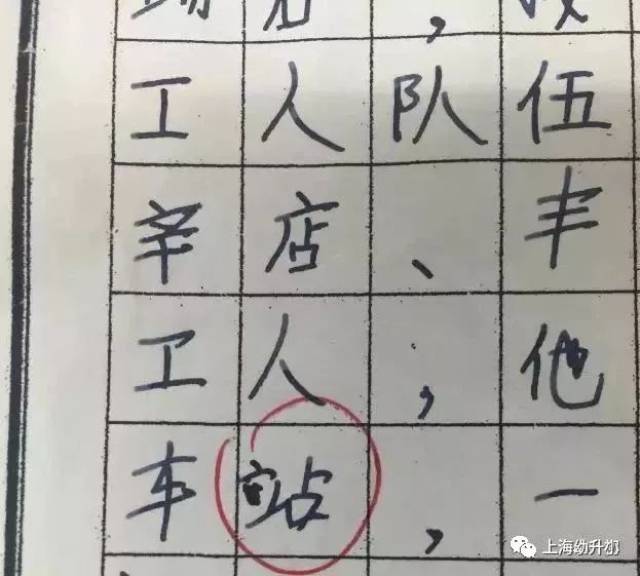 ，
工人队伍
辛店、丰
工人，他
车站，一
上海幼升